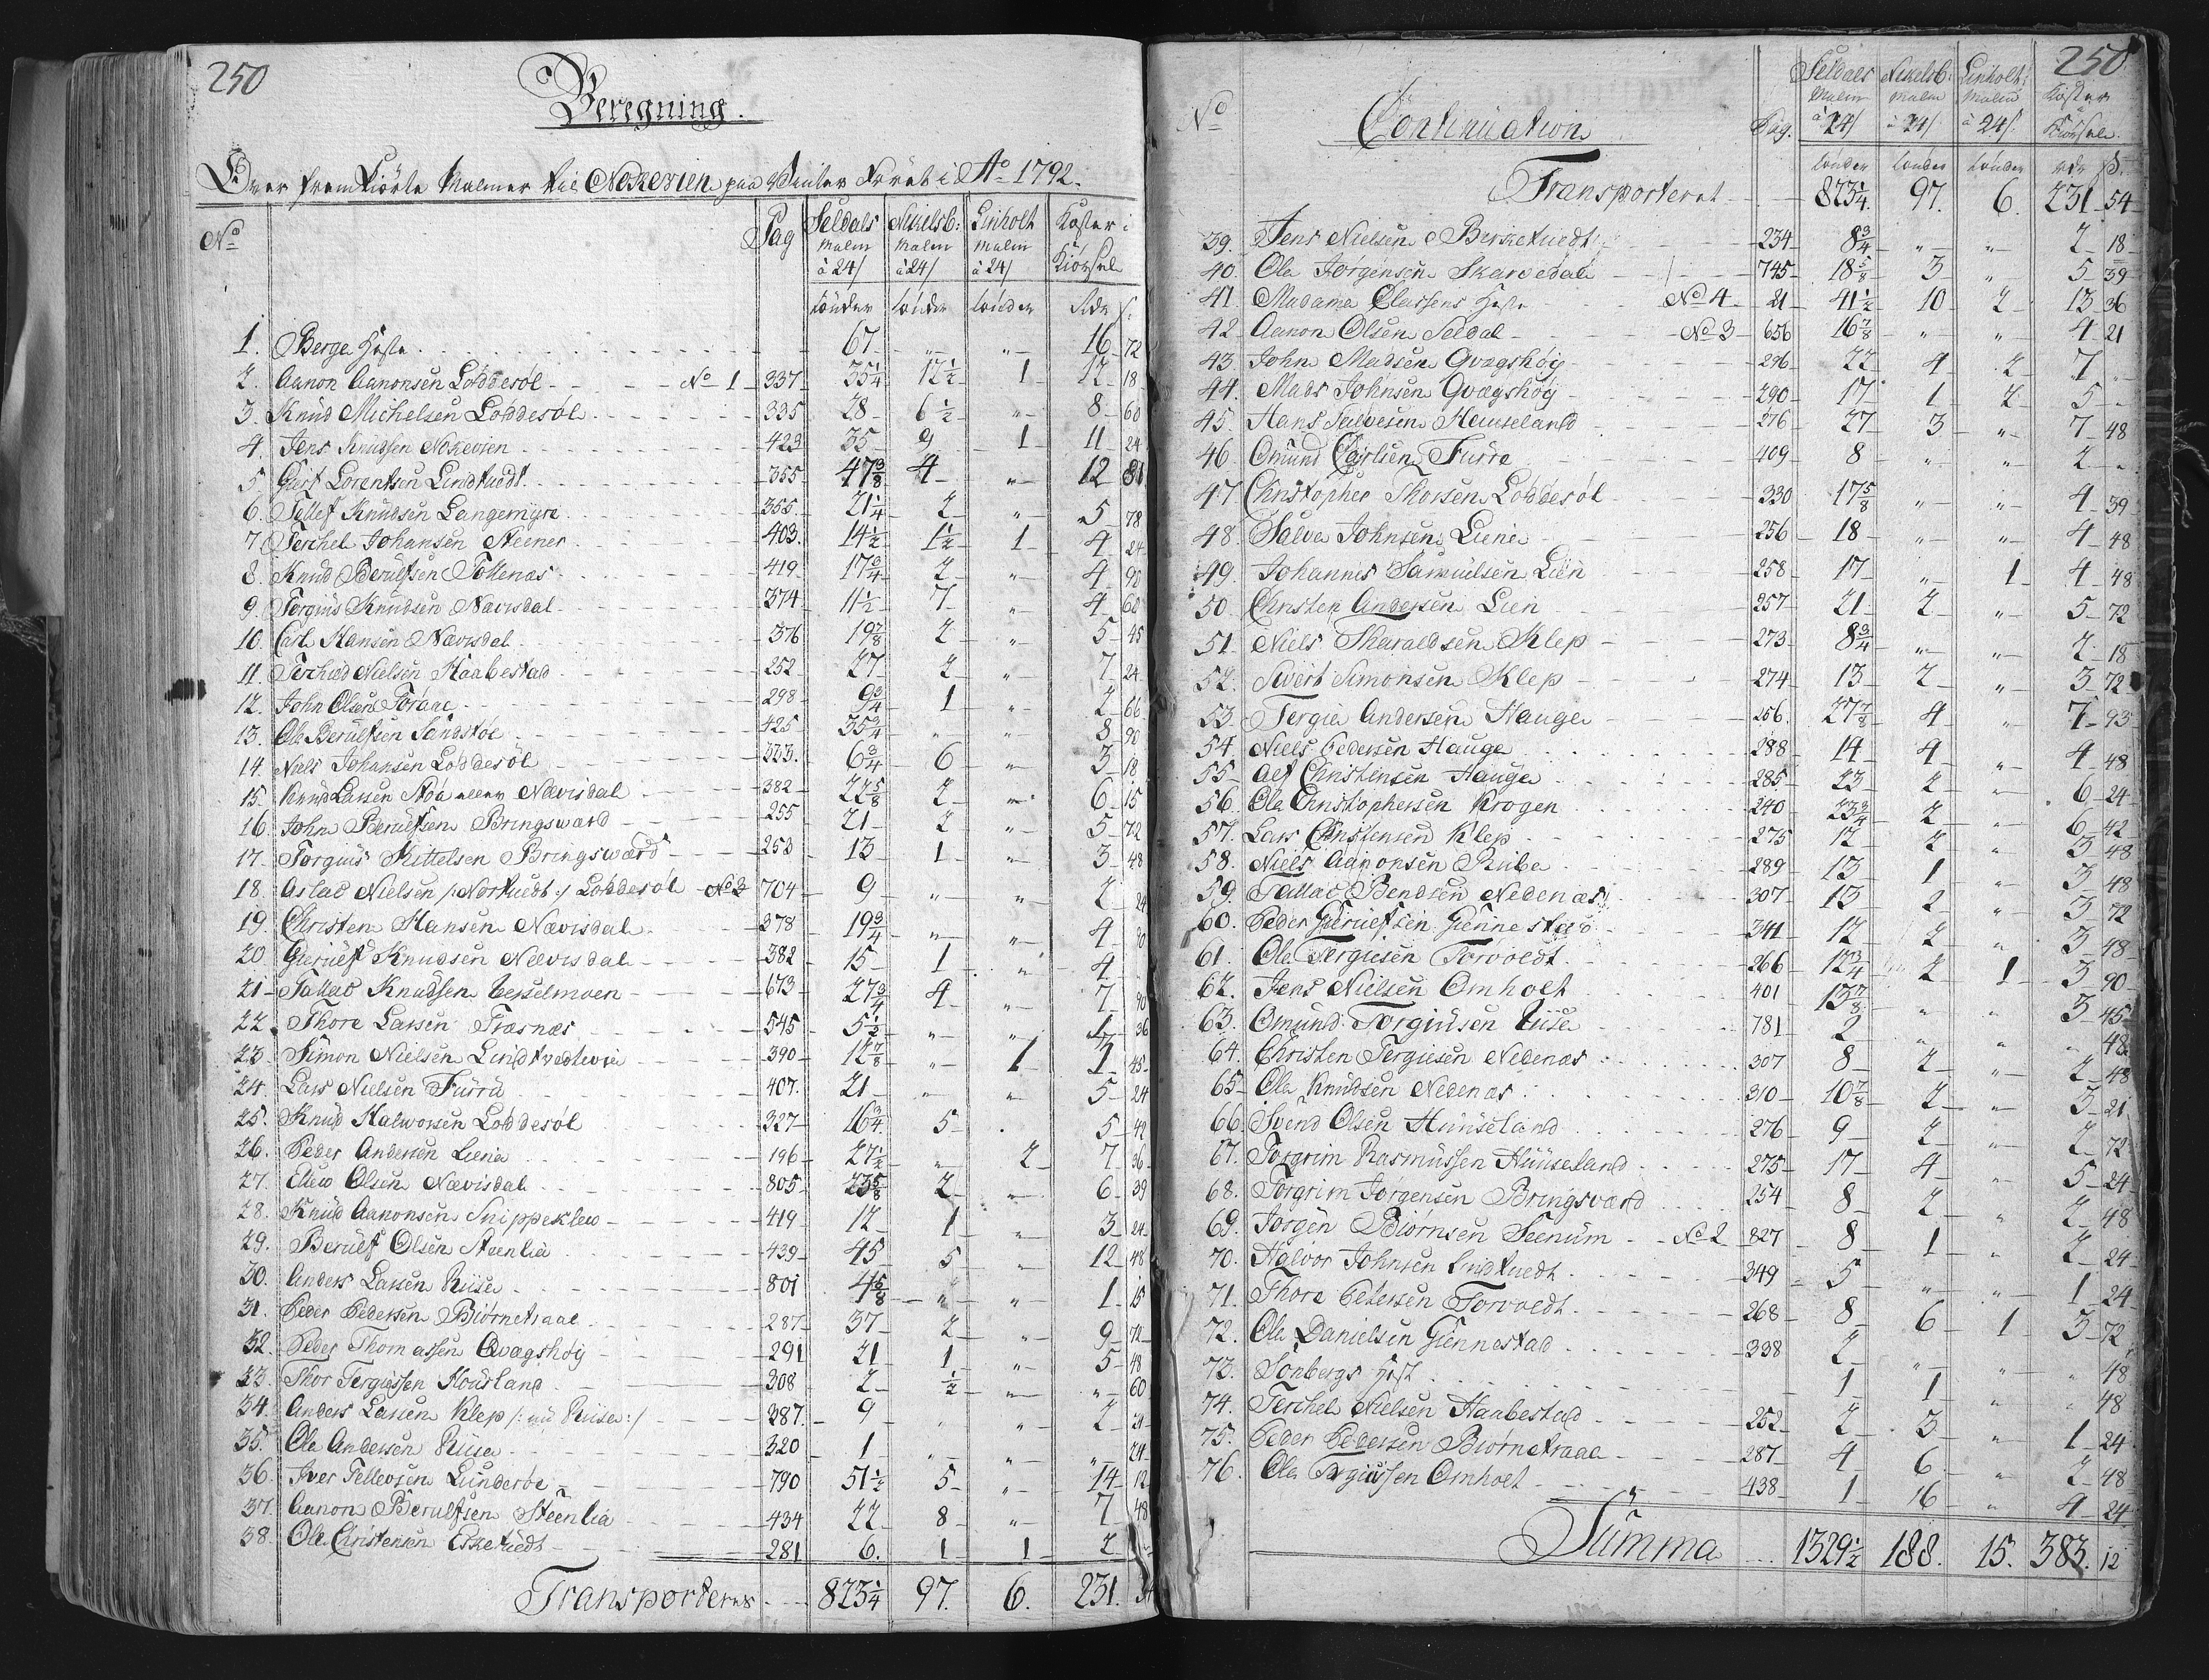 250
Beregning.
Over fremkiörte Malmer til Noskevien paa Vinter Föret i Ao 1792.
No Pag Seldals Malm à 24/ Nikelsb: Malm à 24/ Linholt Malm à 24/ Koster i Kiörsel
tönder tönder tönder Rdr s:
1. Berge Heste 67 " " 16 72
2. Aanon Aanonsen Löddesöl No 1 337 35 1/4 12 1/2 1 12 18
3. Knud Michelsen Löddesöl 335 28 6 1/2 " 8 60
4. Jens Knudsen 423 35 9 1 11 24
5. Giert Lorentsen Lindtuedt 355 47 3/8 4 " 12 81
6. Tellef Knudsen Langemyre 355 21 1/4 2 " 5 78
7. Terchel Johansen Steener 403 14 1/2 1 1/2 1 4 24
8. Knud Berulfsen Tollenæs 419 17 3/4 2 " 4 90
9. Torgius Knudsen Nævisdal 374 11 1/2 7 " 4 60
10. Carl Hansen Nævisdal 376 19 7/8 2 " 5 45
11. Terchel Nielsen Haabestad 252 27 2 " 7 24
12. John Olsen Torane 298 9 3/4 1 " 2 66
13. Ole Berulfsen Sandstöe 425 35 3/4 " " 8 90
14. Niels Johansen Löddesöl 323 6 3/4 6 " 3 18
15. Knud Larsen Nævisdal 382 22 5/8 2 " 6 15
16. John Berulfsen Bringsværd 255 21 2 " 5 72
17. Torgius Kittelsen Bringsværd 253 13 1 " 3 48
18. Aslac Nielsen /:Nortuedt:/ Löddesöl No 2 704 9 " " 2 24
19. Christen Hansen Nævisdal 378 19 3/4 " " 4
20. Gierulf Knudsen Nævisdal 382 15 1 " 4
21. Tallac Knudsen Vesselmoen 673 27 3/4 4 " 7 90
22. Thore Larsen Træsnæs 545 5 1/2 " " 1 36
23. Simon Nielsen Lindtvedtevie 390 12 7/8 " 1 3 45
24. Lars Nielsen Furru 407 21 " " 5 24
25. Knud Halworsen Löddesöl 327 16 3/4 5 5 42
26. Peder Andersen Liene 196 27 1/2 " 2 7 36
27. Ellew Olsen Nævisdal 805 23 5/8 2 " 6 39
28. Knud Aanonsen Snippeklew 419 12 1 " 3 24
29. Berulf Olsen Steenlia 439 45 5 " 12 48
30. Anders Larsen Riise 801 4 5/8 " " 1 15
31. Peder Pedersen Biörnetraae 287 37 2 " 9 72
32. Peder Thomassen Qvagshöy 291 21 1 " 5 48
33. Thor Tergiussen Housland 308 2 1/2 " " 60
34. Anders Larsen Klep /:nu Riise:/ 387 9 " " 2 24
35. Ole Andersen Riise 320 1 " " " 24
36. Iver Tellevsen Lunderöe 790 51 1/2 5 " 14 12
37. Aanon Berulfsen Steenlia 434 22 8 " 7 48
38. Ole Christensen Esketuedt 281 6. 1 1 2
Transporteres 823 1/4 97. 6. 231. 54
250
No Continuation Pag. Seldals Malm à 24/ Nikelsb: Malm à 24/ Linholt: Malm à 24/ Koster Kiörsele.
tönder tönder tönder rdr s.
Transporteret 823 1/4. 97. 6. 231 54
39. Jens Nielsen Bersketuedt 234 8 3/4 " " 2 18
40. Ole Jörgensen Skarvedal 745 18 5/8 3 " 5 39
41. Madame Classens Heste No 4 21 41 1/2 10 2 13 36
42. Aanon Olsen Seldal No 3 656 16 7/8 " " 4 21
43. John Madsen Qvagshöy 296 22 4 2 7 "
44. Mads Johnsen Qvagshöy 290 17 1 2 5 "
45. Hans Salvesen Hauseland 276 27 3 " 7 48
46. Omund Carlsen Furre 409 8 " " 2 "
47. Christopher Thorsen Löddesöl 330 17 5/8 " " 4 39
48. Salve Johnsen Liene 256 18 " " 4 48
49. Johannes Samuelsen Lien 258 17 " 1 4 48
50. Christen Andersen Lien 257 21 2 " 5 72
51. Niels Tharaldsen Klep 273 8 3/4 " " 2 18
52. Sivert Simonsen Klep 274 13 2 " 3 72
53. Tergie Andersen Hauge 256. 27 7/8 4 " 7 93
54. Niels Pedersen Hauge 288 14 4 " 4 48
55. Alf Christensen Hauge 285 23 2 " 6 24
56. Ole Christophersen Krogen 240 23 3/4 2 " 6 42
57. Lars Christensen Klep 275 12 2 " 3 48
58. Niels Aanonsen Riibe 289 13 1 " 3 48
59. Tallac Bendsen Nedenæs 307 13 2 " 3 72
60. Peder Gierulfsen Giennestad 341 12 2 " 3 48
61. Ole Tergiesen Torvoedt 266 12 3/4 2 1 3 90
62. Jens Nielsen Omholt 401 13 7/8 " " 3 45
63. Omund Torgiusen Riise 781 2 " " " 48
64. Christen Tergiesen Nedenæs 307 8 2 " 2 48
65. Ole Knudsen Nedenæs 310 10 7/8 2 " 3 21
66. Svend Olsen Huuseland 276 9 2 " 2 72
67. Torgrim Rasmussen Huuseland 275 17 4 " 5 24
68. Torgrim Jörgensen Bringsværd 254 8 2 " 2 48
69. Jörgen Biörnsen Seenum No 2 827 8 1 " 2 24
70. Halvor Johnsen Lindtuedt 349 5 " " 1 24
71. Thore Petersen Torvoedt 268 8 6 1 3 72
72. Ole Danielsen Giennestad 338 2 " " " 48
73. Sönbergs Hest 1 1 " " 48
74. Terchel Nielsen Haabestad 252 2 3 " 1 24
75. Peder Pedersen Biörnetraae 287 4 6 " 2 48
76. Ole Tergiussen Omholt 438 1 16 " 4 24
Summa 1329 1/2 188. 15. 383. 12